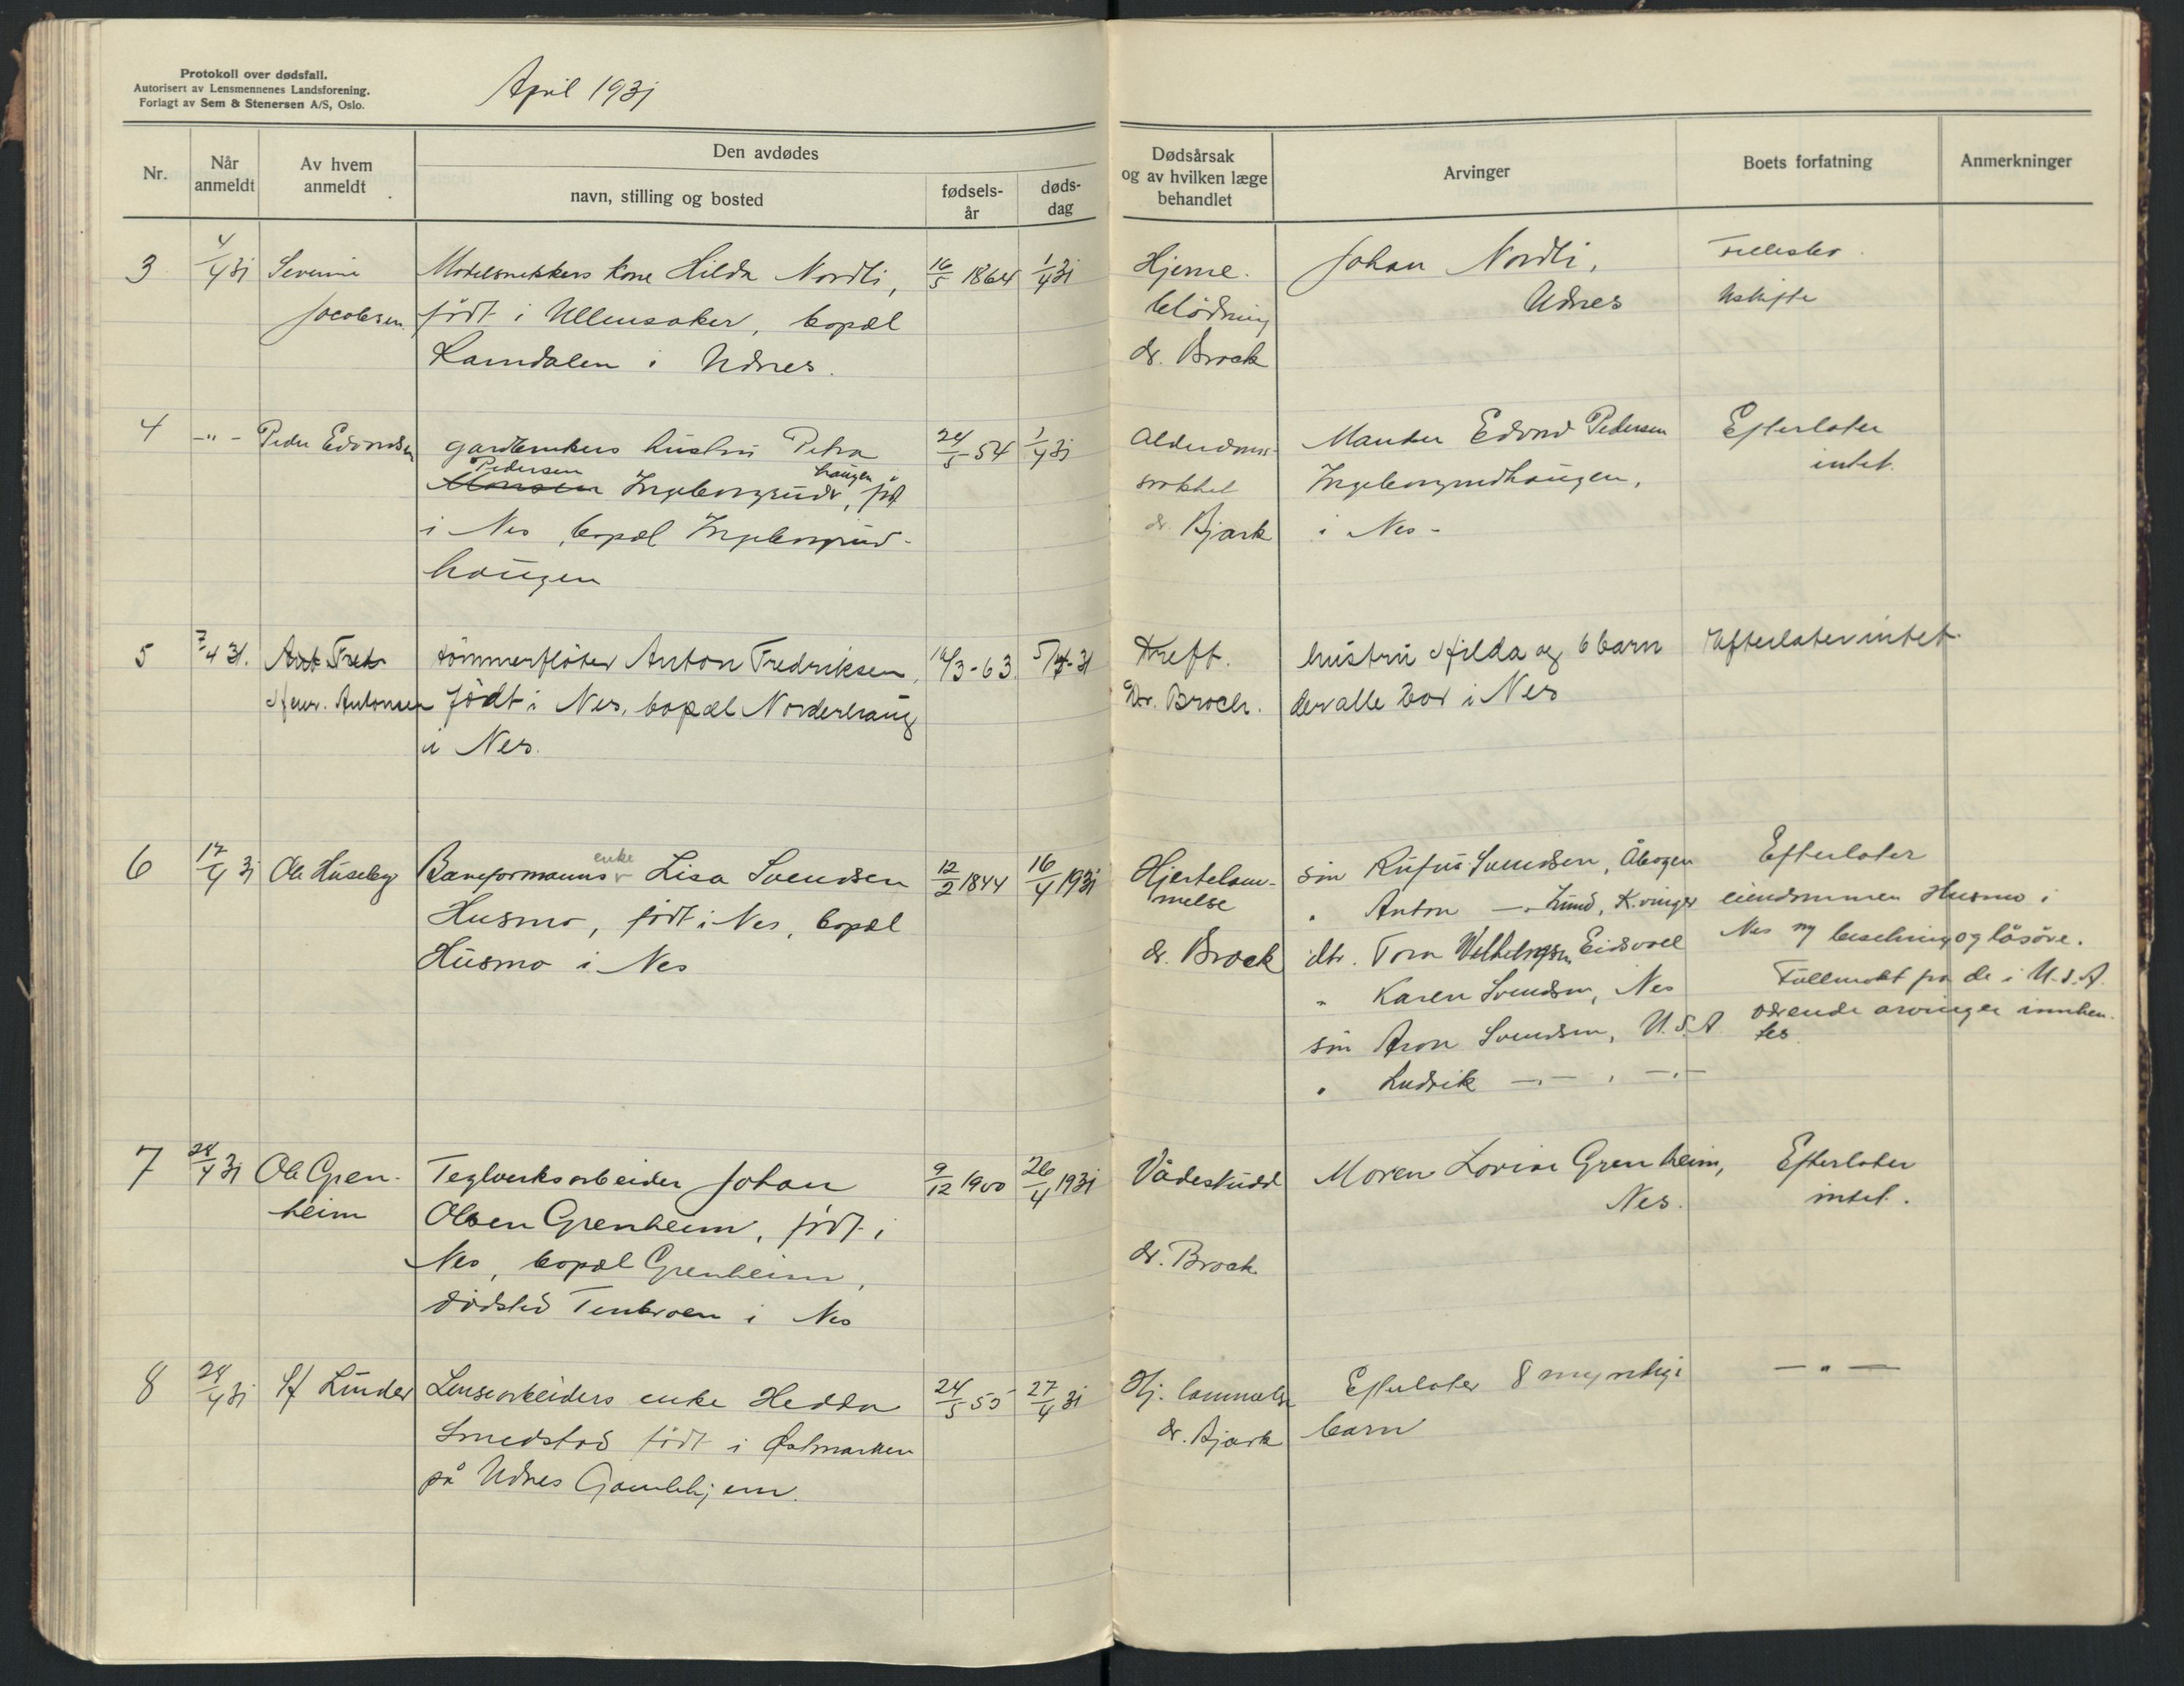 Protokoll over dødsfall.
Autorisert av Lensmennenes Landsforening.
Forlagt av Sem & Stenersen A/S, Oslo.
April 1931
Nr.
Når anmeldt
Av hvem anmeldt
Den avdødes
navn, stilling og bosted
fødsels-år
døds-dag
Dødsårsak og av hvilken læge behandlet
Arvinger
Boets forfatning
Anmerkninger
3
4/4 31
Severine
Jacobsen
Modelsnekkers kone Hilda Nordli,
født i Ullensaker, bopæl
i Udnes.
16/5 1864
1/4 31
Hjerne-
blödning
dr. Brock
Johan Nordli,
Udnes
Uskifte
4
-"-
Peder Edvardsen
gardbrukers hustru Petra
Pedersen haugen
Monsen Ingeborgruds, född
i Nes, bopæl Ingeborgrud-
haugen
24/5 54
1/4 31
Alderdoms-
svakhet
dr. Bjark
Manden Edvard Pedersen
Ingeborgrudhaugen,
i Nes -
Efterlater
intet.
5
7/4 31.
Ant. Fredr
Henr. Antonsen
tömmerflöter Anton Fredriksen,
født i Nes, bopæl Norderhaug
i Nes.
16/3-63.
5/4-31
Kreft.
Dr. Brock.
hustru Hilda og 6 barn
der alle bor i Nes
Efterlater intet.
6
17/4 31
Ole Huseby
Baneformanns enke Lisa Svendsen
Husmo, født i Nes, bopæl
Husmo i Nes
12/2 1844
16/4 1931
Hjertelam-
melse
dr. Brock
sön Rufus Svendsen, Åbogen
" Anton -"- Lund, K.vinger
dtr. Tora Wilhelmsen Eidsvoll
" Karen Svendsen, Nes
sön Aron Svendsen, U.S.A
" Ludvik -"- , -"-
Efterlater
eiendommen Husmo i
Nes og besetning og lösöre.
Fullmakt fra de i U.S.A.
værende arvinger innhen-
tes
7
28/4 31
Ole Gren-
heim
Teglverksarbeider Johan
Olsen Grenheim, født i
Nes, bopæl Grenheim,
dödsted i Nes
9/12 1900
26/4 1931
Vådeskudd
dr. Brock
Moren Lovise Grenheim,
Nes.
Efterlater
intet.
8
28/4 31
Linder
Lensearbeiders enke Hedda
Smedstad født i Østmarken
på Udnes Gamlehjem.
24/5 55
27/4 31
Hj. lammelse
dr. Bjark
Efterlater 8 myndige
barn
-"-